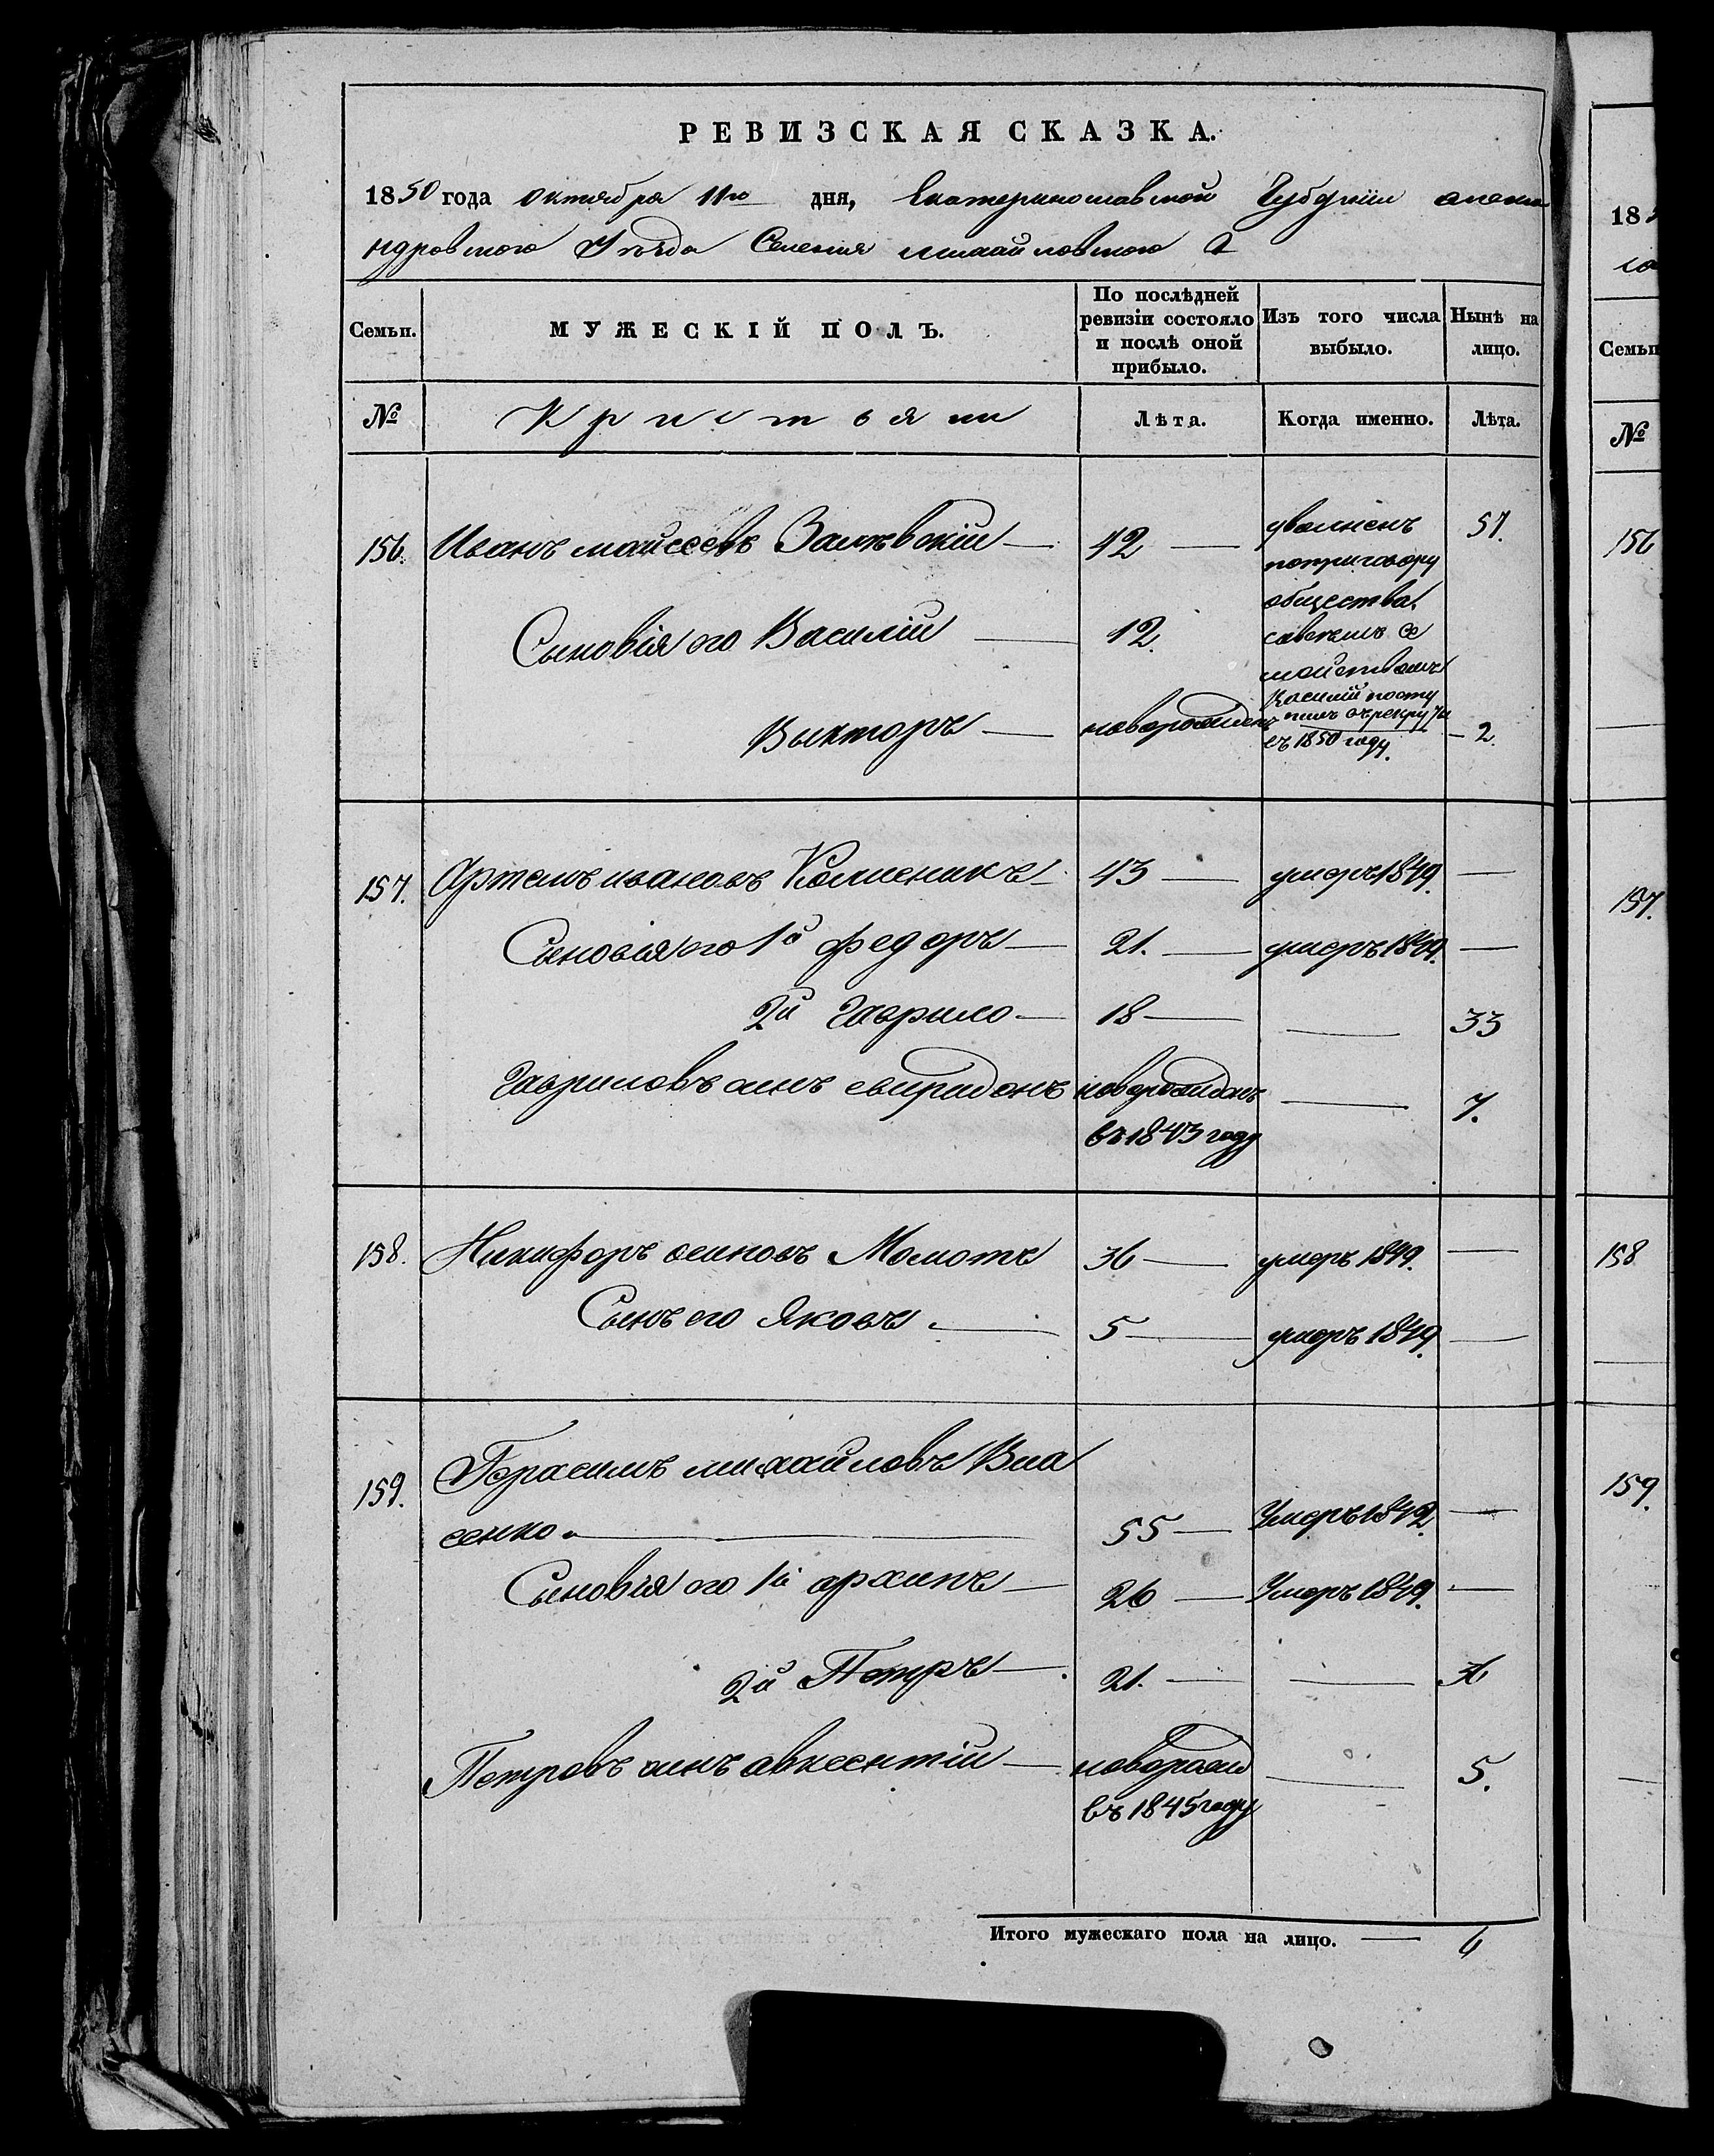 РЕВИЗСКАЯ СКАЗКА.
1850 года октября 11го дня, Екатеринославской Губернии алекса
ндровского Уезда Селения михайловского
Семьи.
МУЖЕСКІЙ ПОЛЪ.
По послѣдней ревизіи состояло и послѣ оной прибыло.
Изъ того числа выбыло.
Нынѣ на лицо.
№
Крестьяни
Лѣта.
Когда именно.
Лѣта.
156. Иванъ мойсеевъ 42 уволненъ 57.
поприговору
общества
Сыновія его Василій 12.
Василій посту
Викторъ новорожденъ 2.
въ 1850 году.
157. Артемъ ивановъ 43 умеръ 1849.
Сыновія его 1й федоръ 21. умеръ 1849.
2й Гаврило 18 33
Гавриловъ сынъ свиридонъ новорожденъ 7.
въ 1843 году
158. Никифоръ осиповъ Момотъ 36 умеръ 1849.
Сынъ его Яковъ 5 умеръ 1849.
159. Герасимъ михайловъ Вла
сенко 55 Умеръ 1842.
Сыновія его 1й архипъ 26 Умеръ 1849.
2й Петръ 21. 36
Петровъ сынъ авксентій новорожд 5.
въ 1845 году
Итого мужескаго пола на лицо. 6
185
Семьи
№
156
157.
158
159.